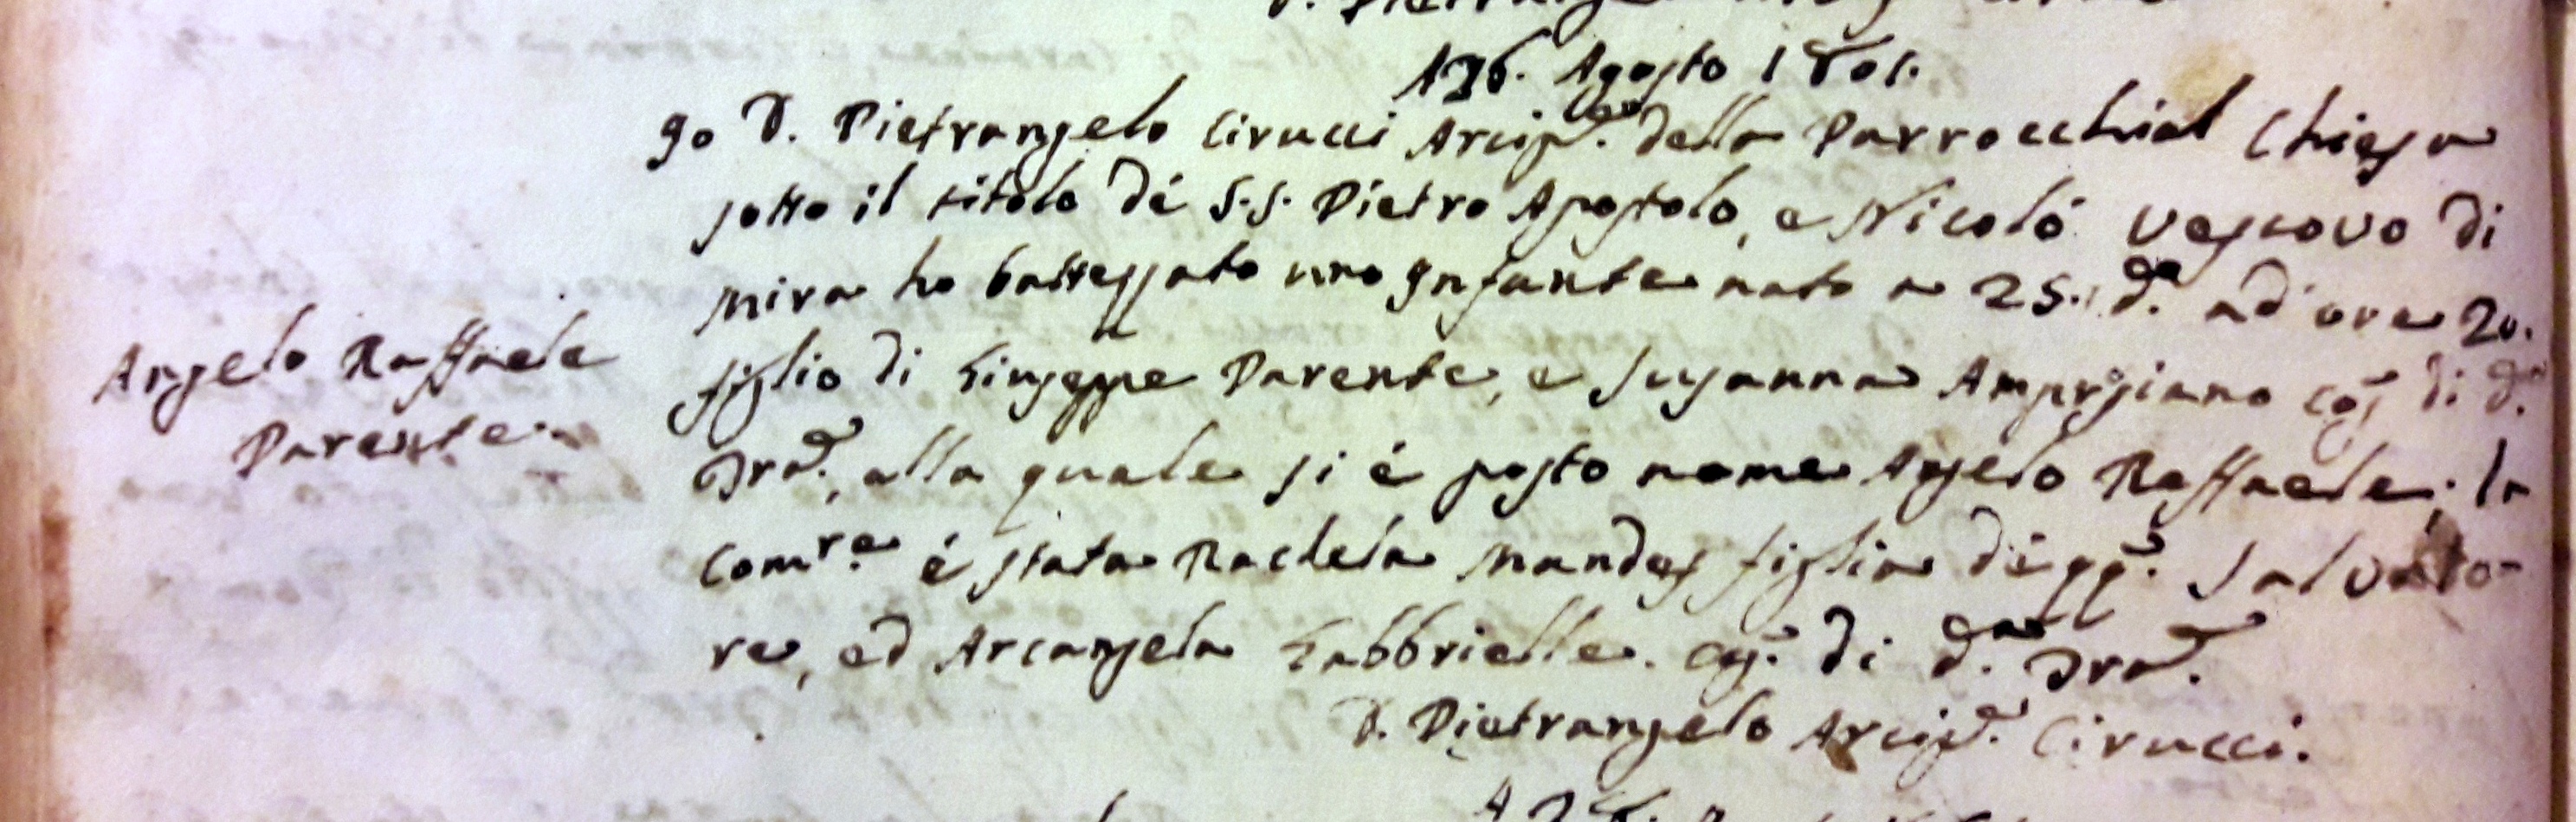 A 26. Agosto 1801.
Io D. Pietrangelo Cirucci Arcip.e della Parrocchial Chiesa
sotto il titolo dé S.S. Pietro Apostolo, e Nicoló Vescovo di
Mira ho battezzato uno Infante nato a 25. d.o ad ore 20.
figlio di Giuseppe Parente, e Susanna coj di d.a
Angelo Raffaele
Parente
Tra., alla quale si é posto nome Angelo Raffaele; la
Com.re é stata Rachela Mandes figlia dé qq. Salvato-
re, ed Arcangela Gabbrielle. coj. di d.a Tra.
D. Pietrangelo Arcip.e Cirucci.